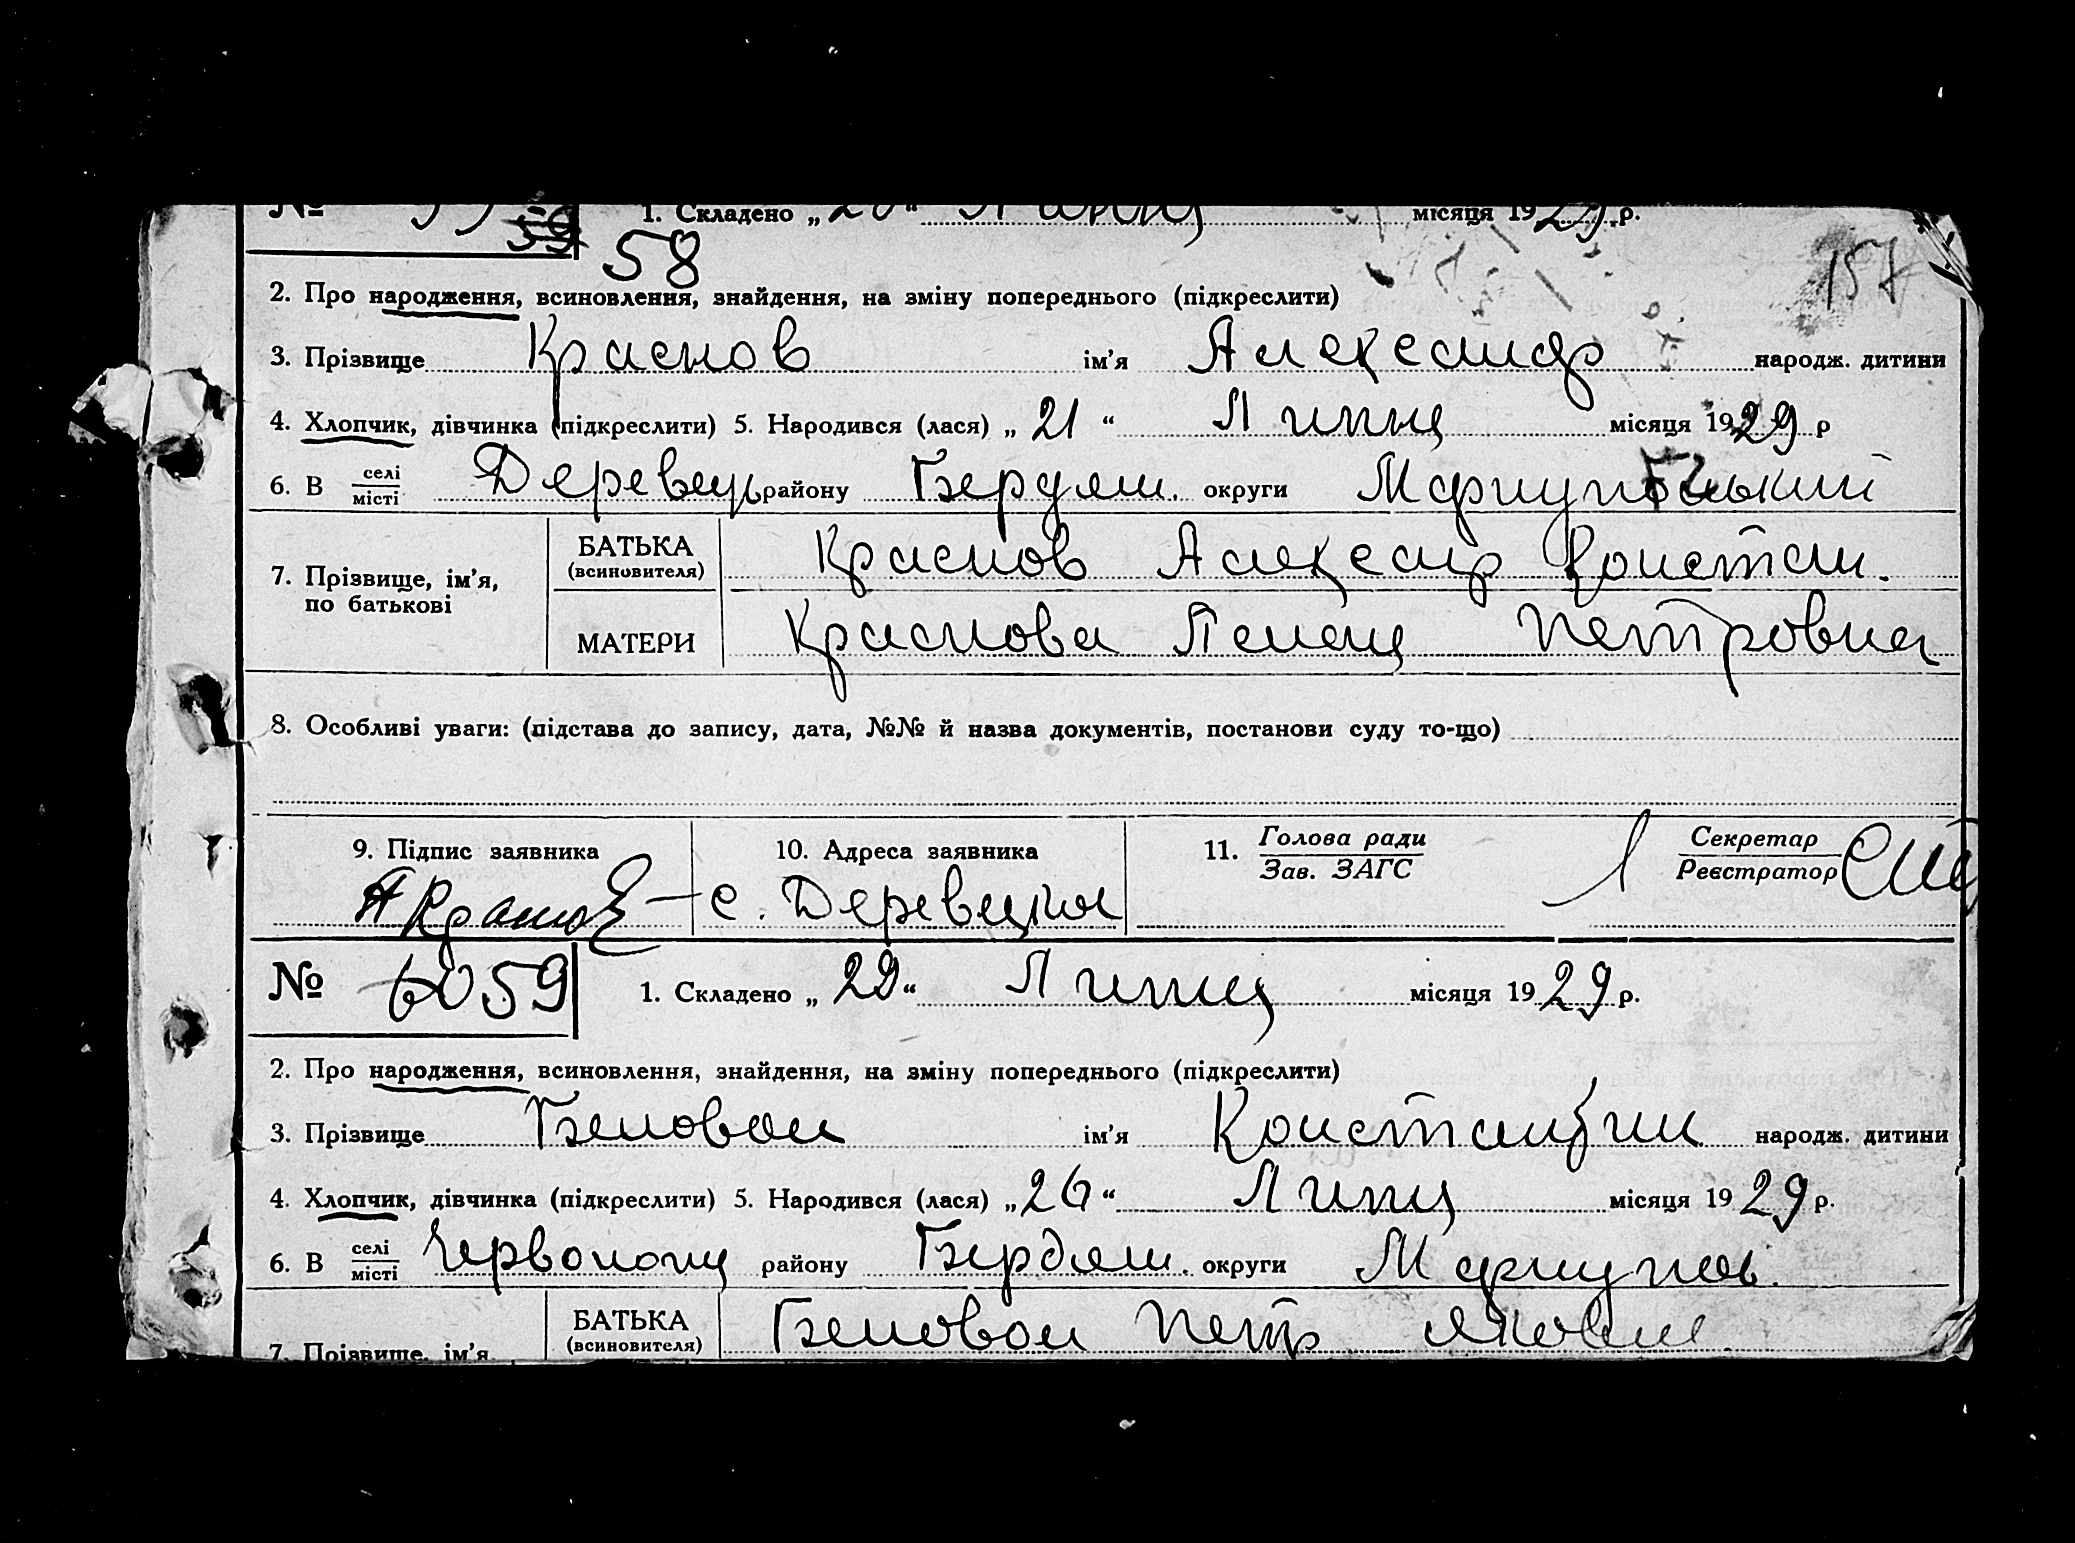 № 59 58 1. Складено „ 26 “ Липця місяця 1929 р.
58
157
2. Про народження, всиновлення, знайдення, на зміну попереднього (підкреслити)
3. Прізвище Краснов ім’я Александр народж. дитини
4. Хлопчик, дівчинка (підкреслити) 5. Народився (лася) „ 21 “ Липця місяця 1929 р
6. В селі/місті Деревець району Бердян. округи Маріупольский
7. Прізвище, ім’я, по батькові
БАТЬКА (всиновителя) Краснов Алексанр Констан.
МАТЕРИ Краснова Петровна
8. Особливі уваги: (підстава до запису, дата, №№ й назва документів, постанови суду то-що)
9. Підпис заявника 10. Адреса заявника 11. Голова ради/Зав. ЗАГС Секретар/Реєстратор
А Краснов с. Деревецкая
№ 60 59 1. Складено „ 29 “ Липця місяця 1929 р.
2. Про народження, всиновлення, знайдення, на зміну попереднього (підкреслити)
3. Прізвище Беловол ім’я Константин народж. дитини
4. Хлопчик, дівчинка (підкреслити) 5. Народився (лася) „ 26 “ Липця місяця 1929 р.
6. В селі/місті району Бердян. округи Мариупол.
7. Прізвище, ім’я
БАТЬКА (всиновителя) Беловол Петр Яковл